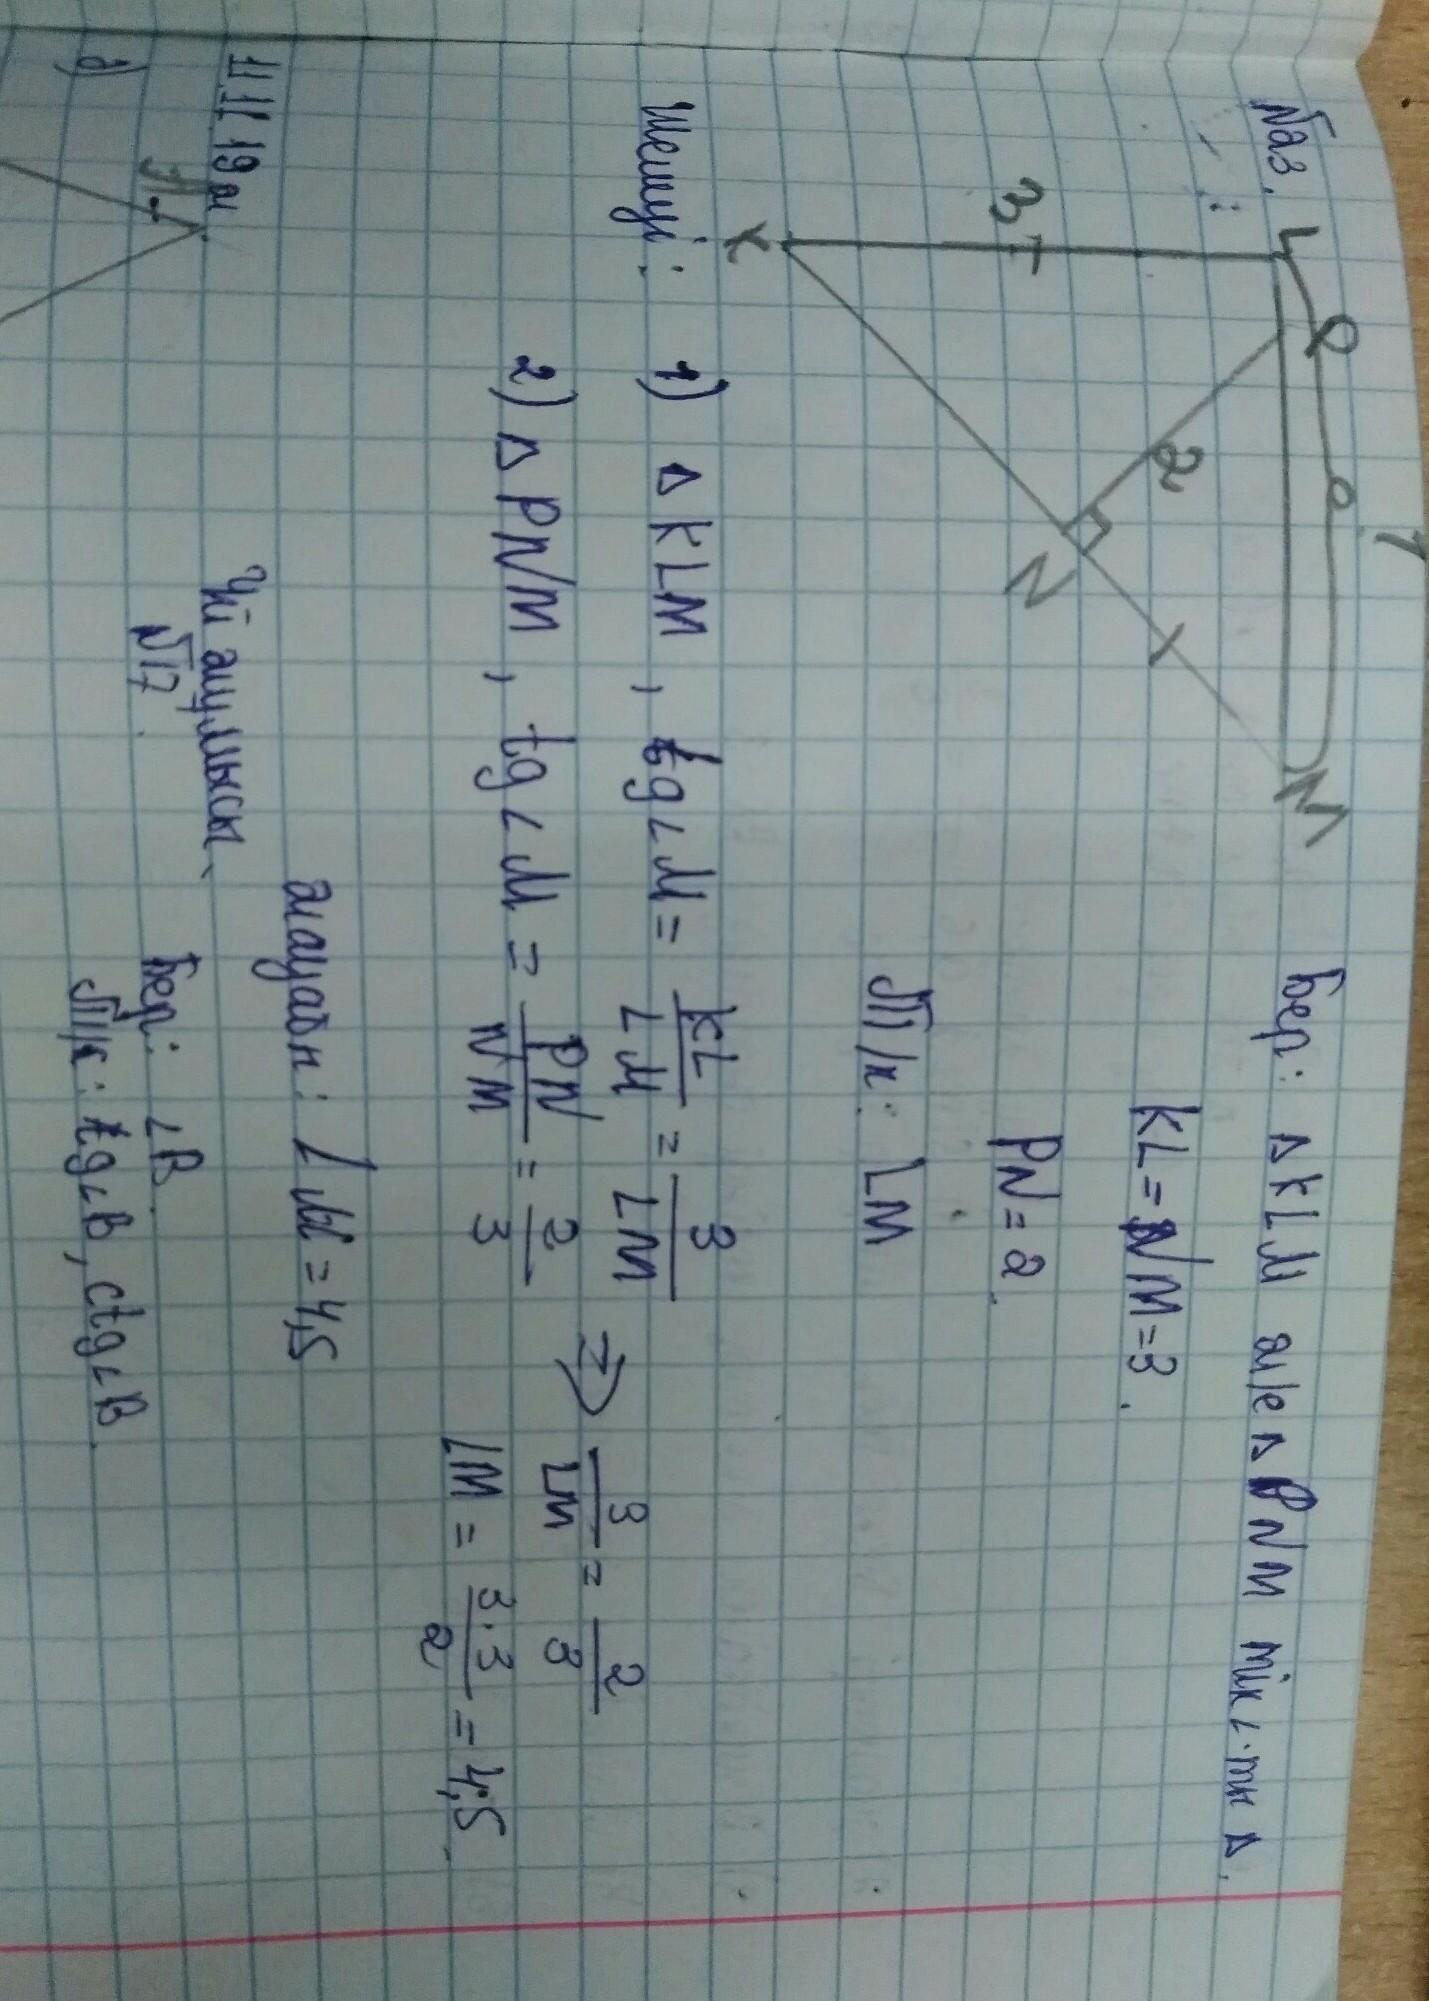 L P M ?
3 2
K N
Бер: ∆ KLM ж/е ∆ PNM тік∠·ты ∆.
KL = NM = 3.
PN = 2.
Т/к: LM
Шешуі: 1) ∆ KLM, tg∠M = KL/LM = 3/LM
2) ∆ PNM, tg∠M = PN/NM = 2/3
⇒ 3/LM = 2/3
LM = 3·3/2 = 4,5
жауабы: LM = 4,5
11.11.19 ж
Үй жұмысы
№17.
1) A
Бер: ∠B.
Т/к: tg∠B, ctg∠B.